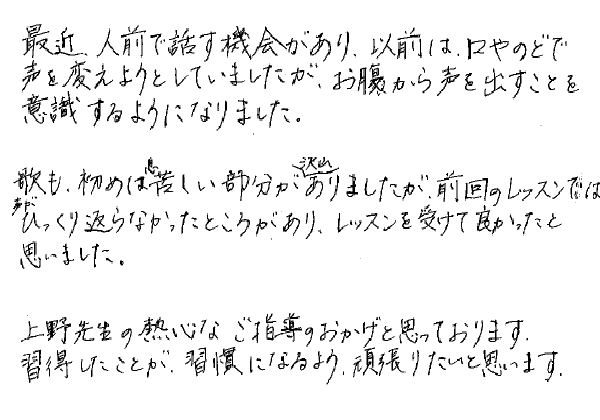 最近、人前で話す機会があり、以前は、口やのどで
声を変えようとしていましたが、お腹から声を出すことを
意識するようになりました。
歌も、初めは息苦しい部分が沢山ありましたが、前回のレッスンでは
声がひっくり返らなかったところがあり、レッスンを受けて良かったと
思いました。
上野先生の熱心なご指導のおかげと思っております。
習得したことが、習慣になるよう、頑張りたいと思います。